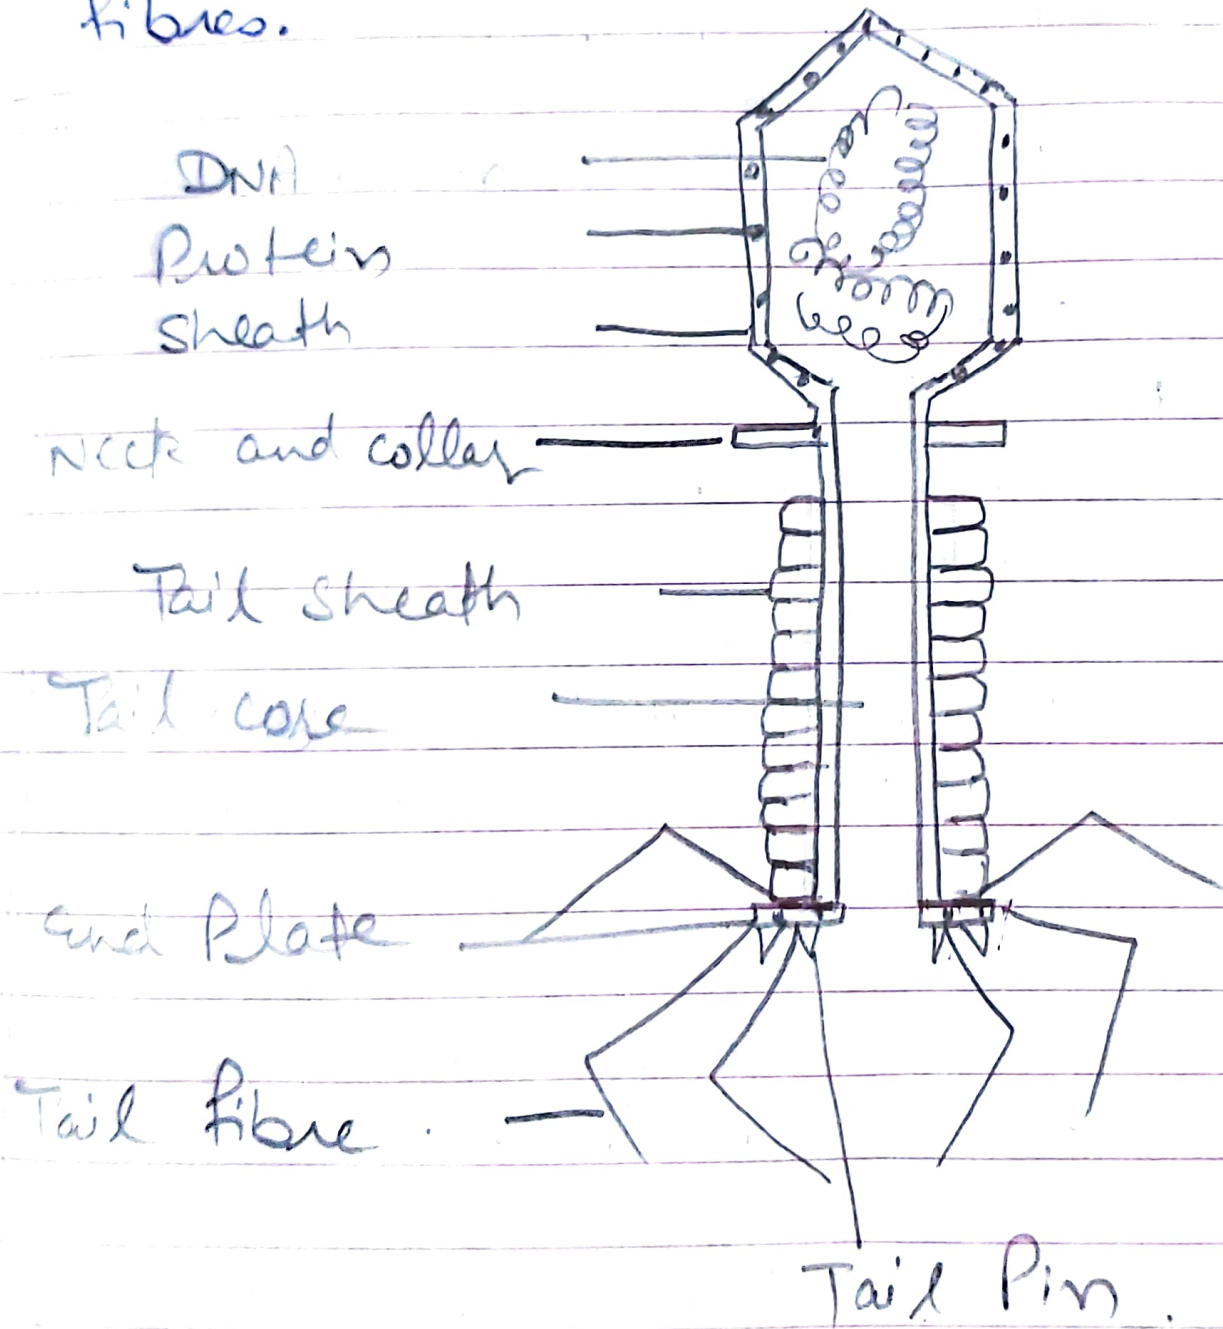 fibres.
DNA
Protein
Sheath
Neck and collar
Tail Sheath
Tail core
End Plate
Tail fibre.
Tail Pin.